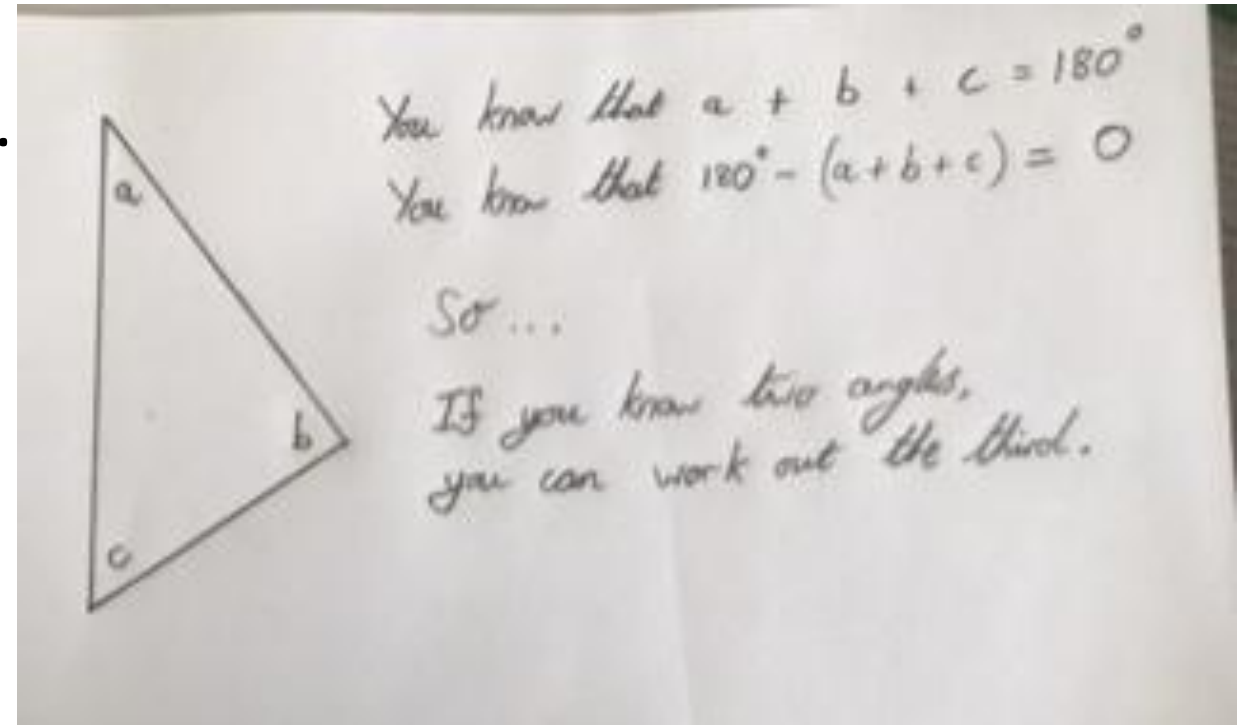 You know that a + b + c = 180°
You know that 180° - (a + b + c) = 0
a
So...
b
If you know two angles,
you can work out the third.
c